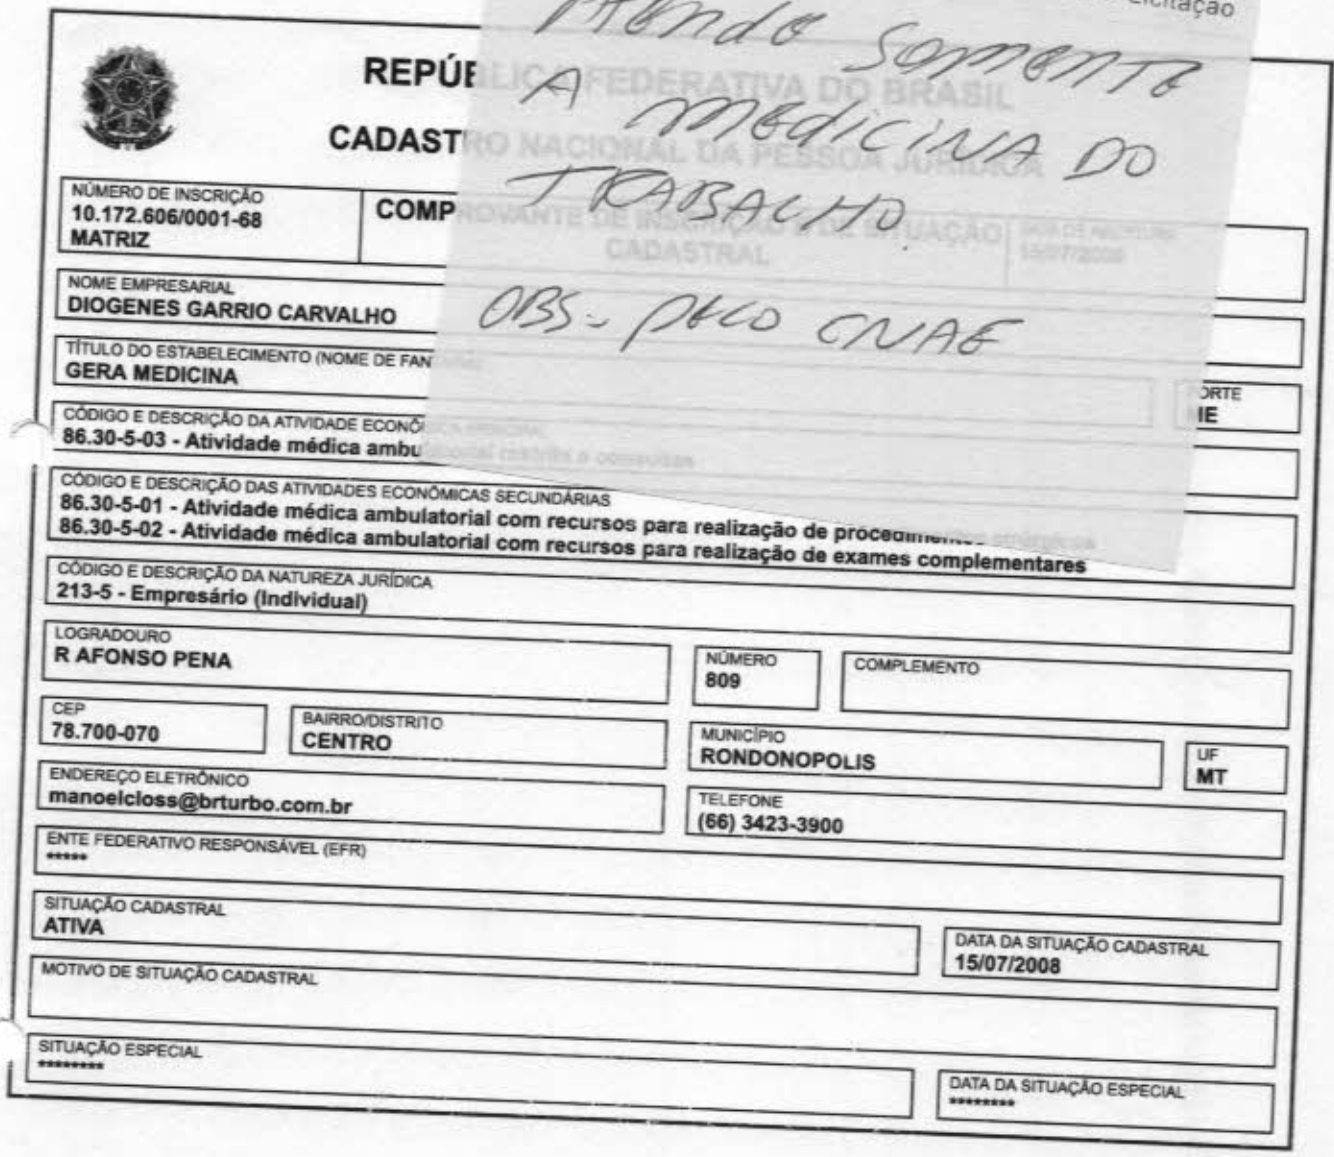 icitação
Atende somente
A medicina do
TRABALHO.
OBS- pelo CNAE
REPÚBLICA FEDERATIVA DO BRASIL
CADASTRO NACIONAL DA PESSOA JURÍDICA
NÚMERO DE INSCRIÇÃO
10.172.606/0001-68
MATRIZ
COMPROVANTE DE INSCRIÇÃO E DE SITUAÇÃO
CADASTRAL
DATA DE ABERTURA
15/07/2008
NOME EMPRESARIAL
DIOGENES GARRIO CARVALHO
TÍTULO DO ESTABELECIMENTO (NOME DE FANTASIA)
GERA MEDICINA
PORTE
ME
CÓDIGO E DESCRIÇÃO DA ATIVIDADE ECONÔMICA PRINCIPAL
86.30-5-03 - Atividade médica ambulatorial restrita a consultas
CÓDIGO E DESCRIÇÃO DAS ATIVIDADES ECONÔMICAS SECUNDÁRIAS
86.30-5-01 - Atividade médica ambulatorial com recursos para realização de procedimentos cirúrgicos
86.30-5-02 - Atividade médica ambulatorial com recursos para realização de exames complementares
CÓDIGO E DESCRIÇÃO DA NATUREZA JURÍDICA
213-5 - Empresário (Individual)
LOGRADOURO
R AFONSO PENA
NÚMERO
809
COMPLEMENTO
CEP
78.700-070
BAIRRO/DISTRITO
CENTRO
MUNICÍPIO
RONDONOPOLIS
UF
MT
ENDEREÇO ELETRÔNICO
manoelcloss@brturbo.com.br
TELEFONE
(66) 3423-3900
ENTE FEDERATIVO RESPONSÁVEL (EFR)
*****
SITUAÇÃO CADASTRAL
ATIVA
DATA DA SITUAÇÃO CADASTRAL
15/07/2008
MOTIVO DE SITUAÇÃO CADASTRAL
SITUAÇÃO ESPECIAL
********
DATA DA SITUAÇÃO ESPECIAL
********